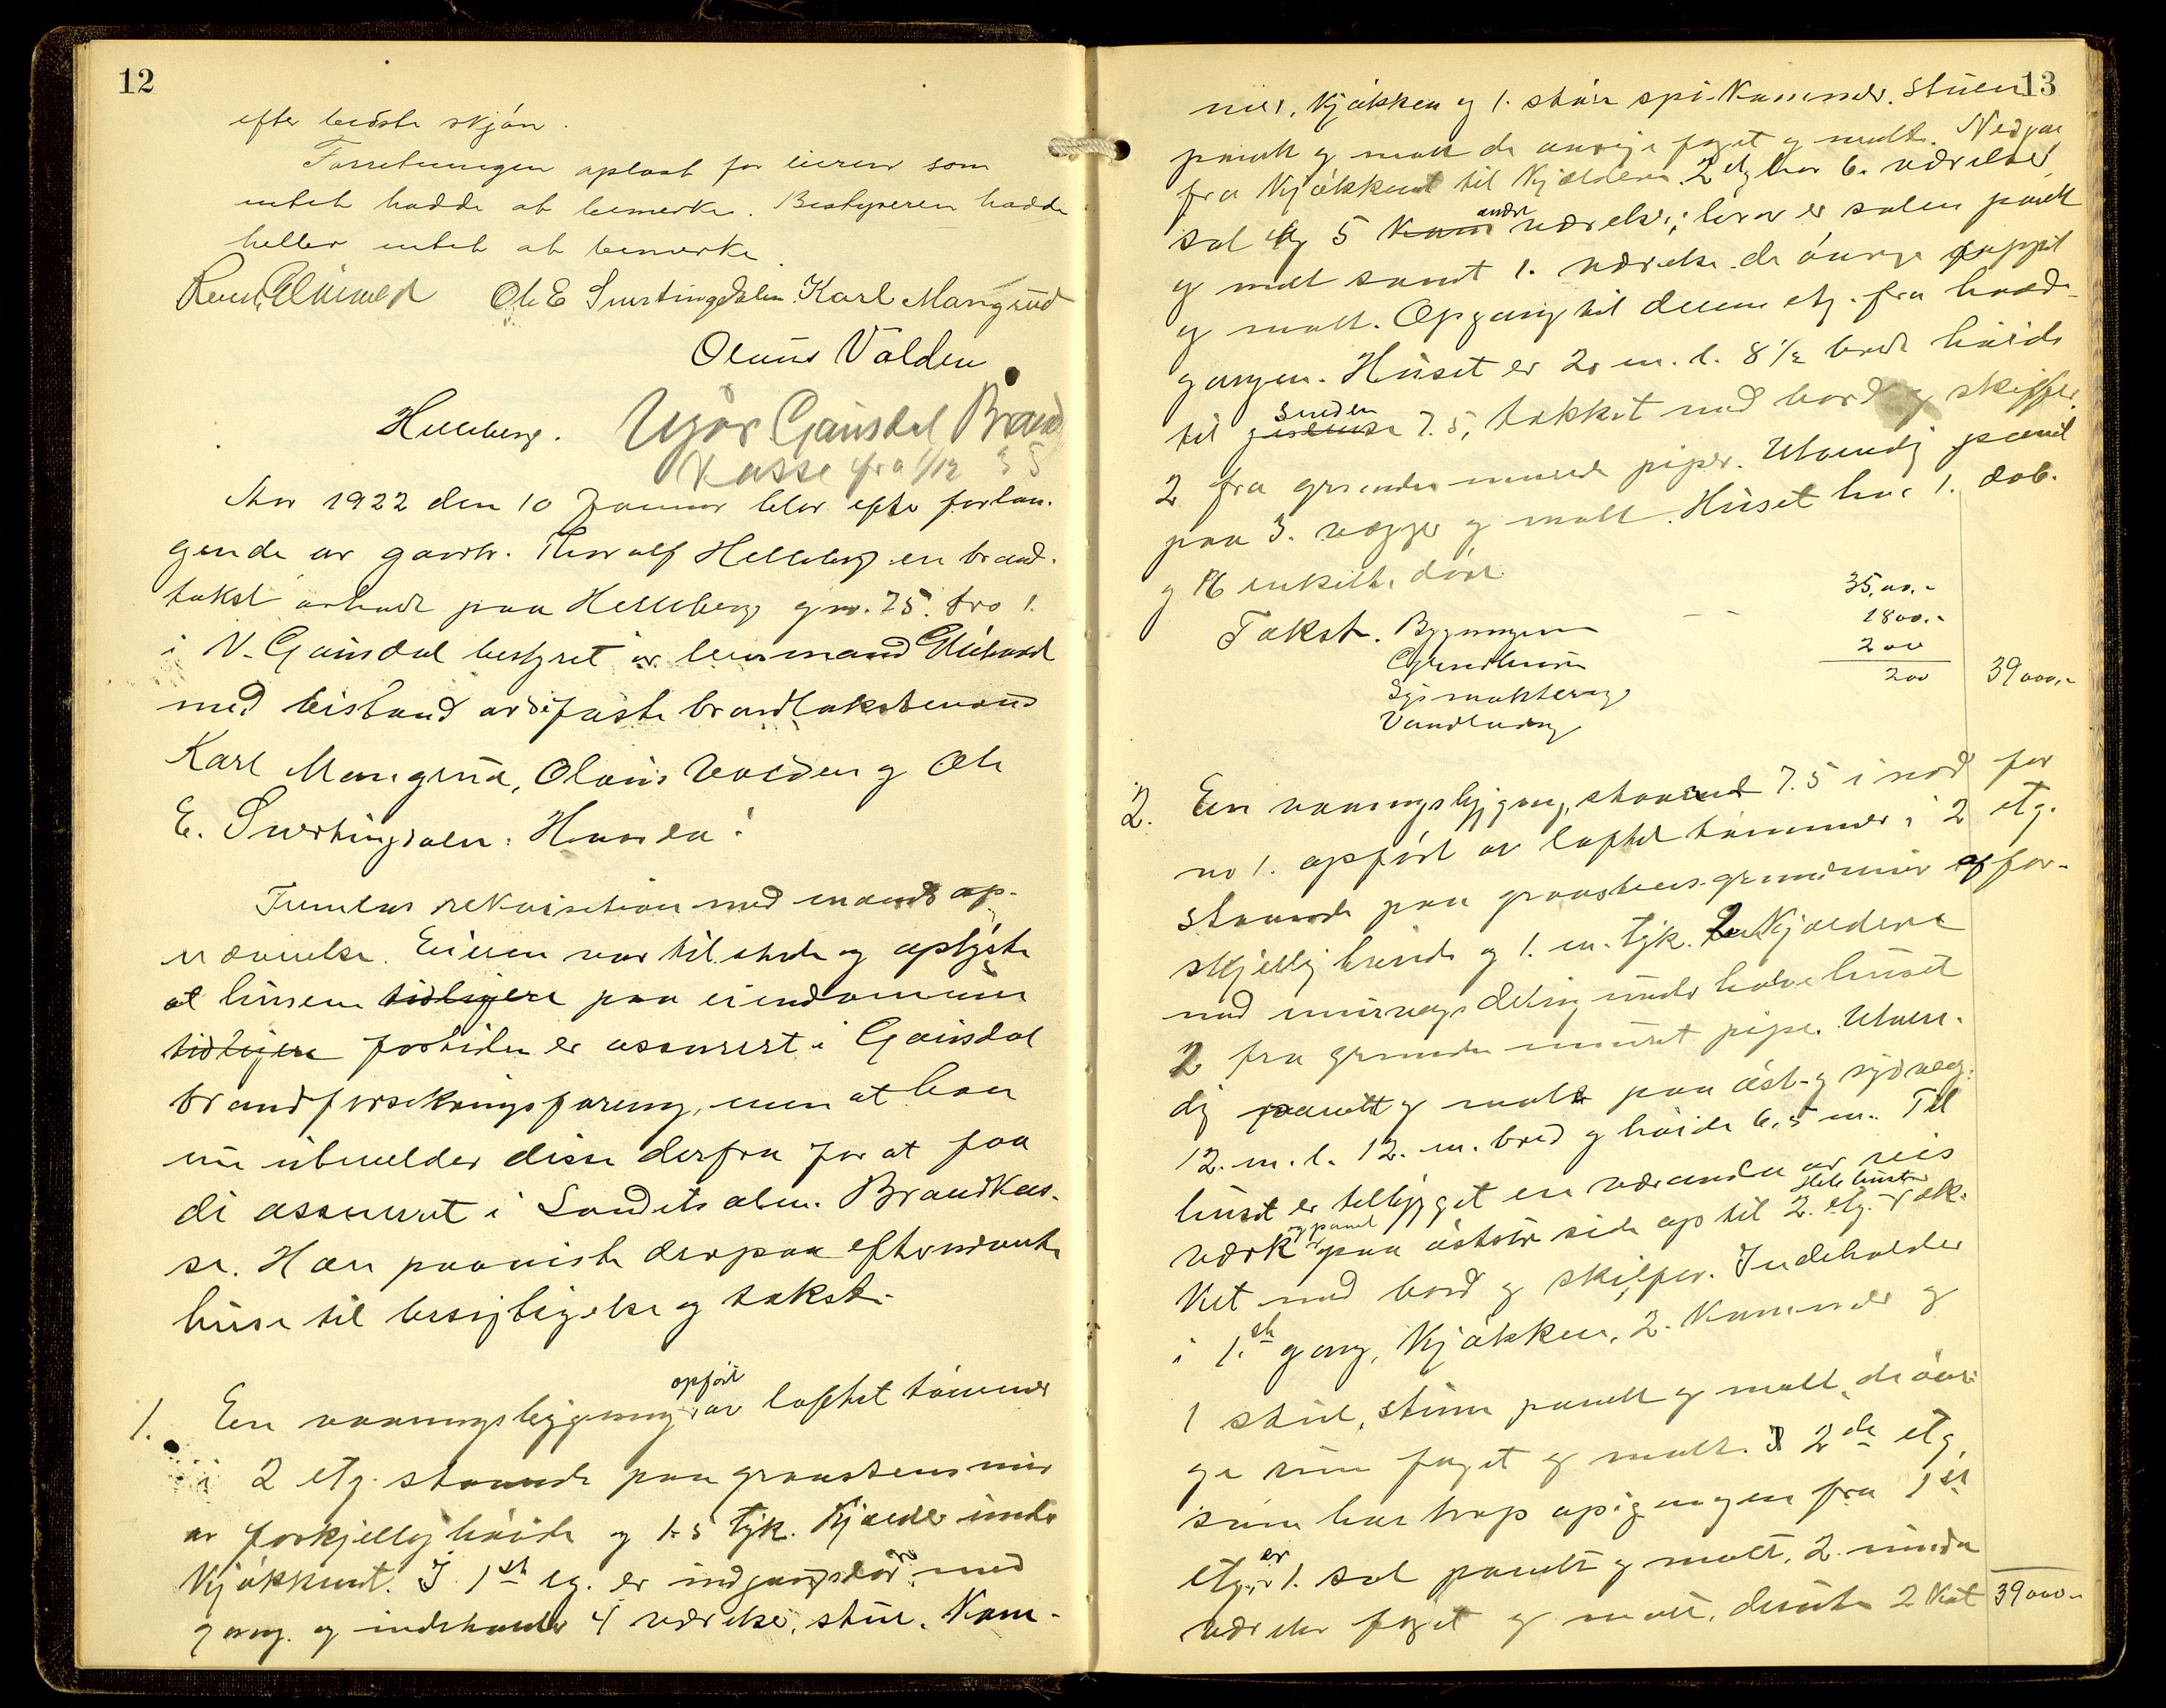 12
efter bedste skjøn.
Forretningen oplæst for eieren som
intet hadde at bemerke. Bestyreren hadde
heller intet at bemerke
Ole E Svertingdalen Karl Mangrud
Olaus Volden
Helleberg. Utgår Gausdal Brand
Kasse fra 1/12 35
Aar 1922 den 10 Januar blev efter forlan-
gende av gaardbr. Thoralf Helleberg en brand-
takst avholdt paa Helleberg gno. 75. bro 1.
i V. Gausdal bestyret av lensmand
med bistand av de faste brandtakstmænd
Karl Mangrud, Olaus Volden og Ole
E. Svertingdalen. Hvorda!
Fremlas rekvisition med mands op-
nævnelse. Eieren var tilstede og oplyste
at husene tidligere paa eiendommen
tidligere fortiden er assurert i Gausdal
brandforsikringsforening, men at han
nu utmelder disse derfra for at faa
de assurert i Landets alm. Brandkas-
se. Han paaviste derpaa efternævnte
huse til besigtigelse og takst.
1. En vaaningsbygning opført av laftet tømmer
i 2 etg. staaende paa graastensmur
av forskjellig høide og 1.5 tyk. Kjælder under
kjøkkenet. I 1ste eg. er indgangsdør med
gang og indeholder 4 værelser, stue, Kam-
13
mer, Kjøkken og 1. større spi-Kammer. Stuen
panelt og malt de øvrige faget og malt. Nedgan
fra Kjøkkenet til Kjælderen. 2 etg har 6. værelser
sal og 5 Kam andre værelser; hvorav er salen panelt
og malt samt 1. værelse. de øvrige pappet
og malt. Opgang til denne etg. fra hoved-
gangen. Huset er 20 m. l. 8 1/2 bredt høide
til 7.5, tækket med bord og skiffer.
2 fra grunden murede piper. Utvendig panel
paa 3. vægger og malt. Huset har 1. dob.
og 16 enkelte døre
Takst. Bygningen 35,00.-
Grundmur 1800.-
200
Vandledning 200 39000,-
2. En vaaningsbygning, staaende 7.5 i nord for
no 1. opført av laftet tømmer i 2 etg.
staaende paa graastens-grundmur af for-
skjellig høide og 1. m. tyk. 2 Kjældere
med murvægs deling under halve huset
2 fra grunden muret pipe. Utven-
dig panelt og malt paa øst- og sydveg.
12. m. l. 12. m. bred og høide 6.5 m. Til
huset er tilbygget en veranda av reis
værk og panel paa østre side op til 2. etg. hele huset Tæk-
ket med bord og skifer. Indeholder
i 1.ste gang, Kjøkken, 2. Kammer og
1 stue, stuen panelt og malt, de øvri-
ge rum faget og malt. I 2de etg,
som har trap opigangen fra 1ste
etg., er 1. sal panelt og malt, 2. mindre
værelser faget og malt, desuten 2 Kot 39000-